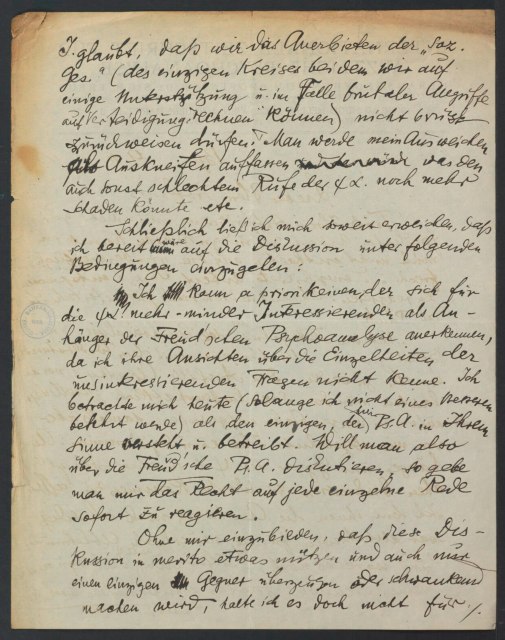 J. glaubt, daß wir das Anerbieten der „Soz.
Ges." (des einzigen Kreises bei dem wir auf
einige Unterstützung u. im Falle brutaler Angriffe
auf Verteidigung rechnen können) nicht brüsk
zurückweisen dürfen. Man werde mein Ausweichen
als Auskneifen auffassen was den
auch sonst schlechtem Rufe der ψα. noch mehr
schaden könnte etc.
Schließlich ließ ich mich soweit erweichen, daß
ich bereit wäre auf die Diskussion unter folgenden
Bedingungen einzugehen:
Ich kann a priori keinen, der sich für
die ψα mehr-minder Interessierenden als An-
hänger der Freud'schen Psychoanalyse anerkennen,
da ich ihre Ansichten über die Einzelheiten der
uns interessierenden Fragen nicht kenne. Ich
betrachte mich heute (solange ich nicht eines Besseren
belehrt werde) als den einzigen, der die Ps.A. in Ihrem
Sinne versteht u. betreibt. Will man also
über die Freud'sche Ps.A. diskutieren, so gebe
man mir das Recht auf jede einzelne Rede
sofort zu reagieren.
Ohne mir einzubilden, daß diese Dis-
kussion in merito etwas nützen und auch nur
einen einzigen Gegner überzeugen oder schwankend
machen wird, halte ich es doch nicht für ./.